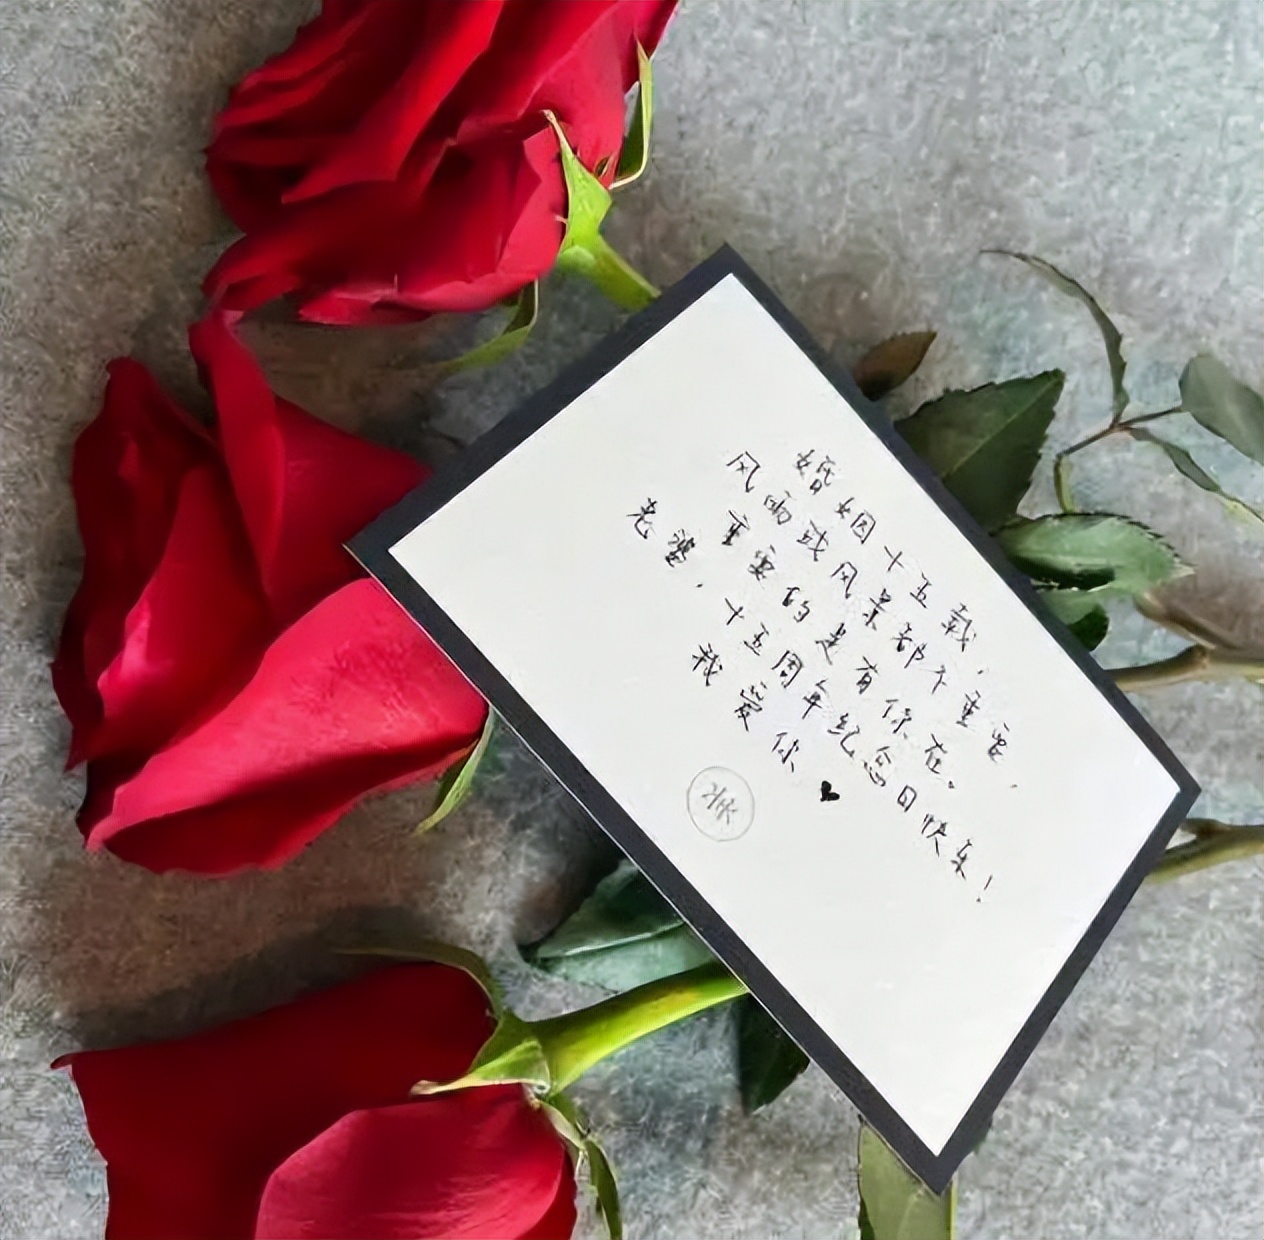 婚姻十五载，
风雨或风景都不重要，
重要的是有你在。
老婆，十五周年纪念日快乐！
我爱你♥